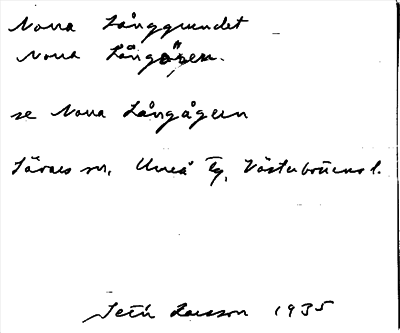 Norra Långgrundet
Norra Långören.
se Norra Långågern
Sävars sn, Umeå tg, Västerbottens l.
Setú Larsson 1935